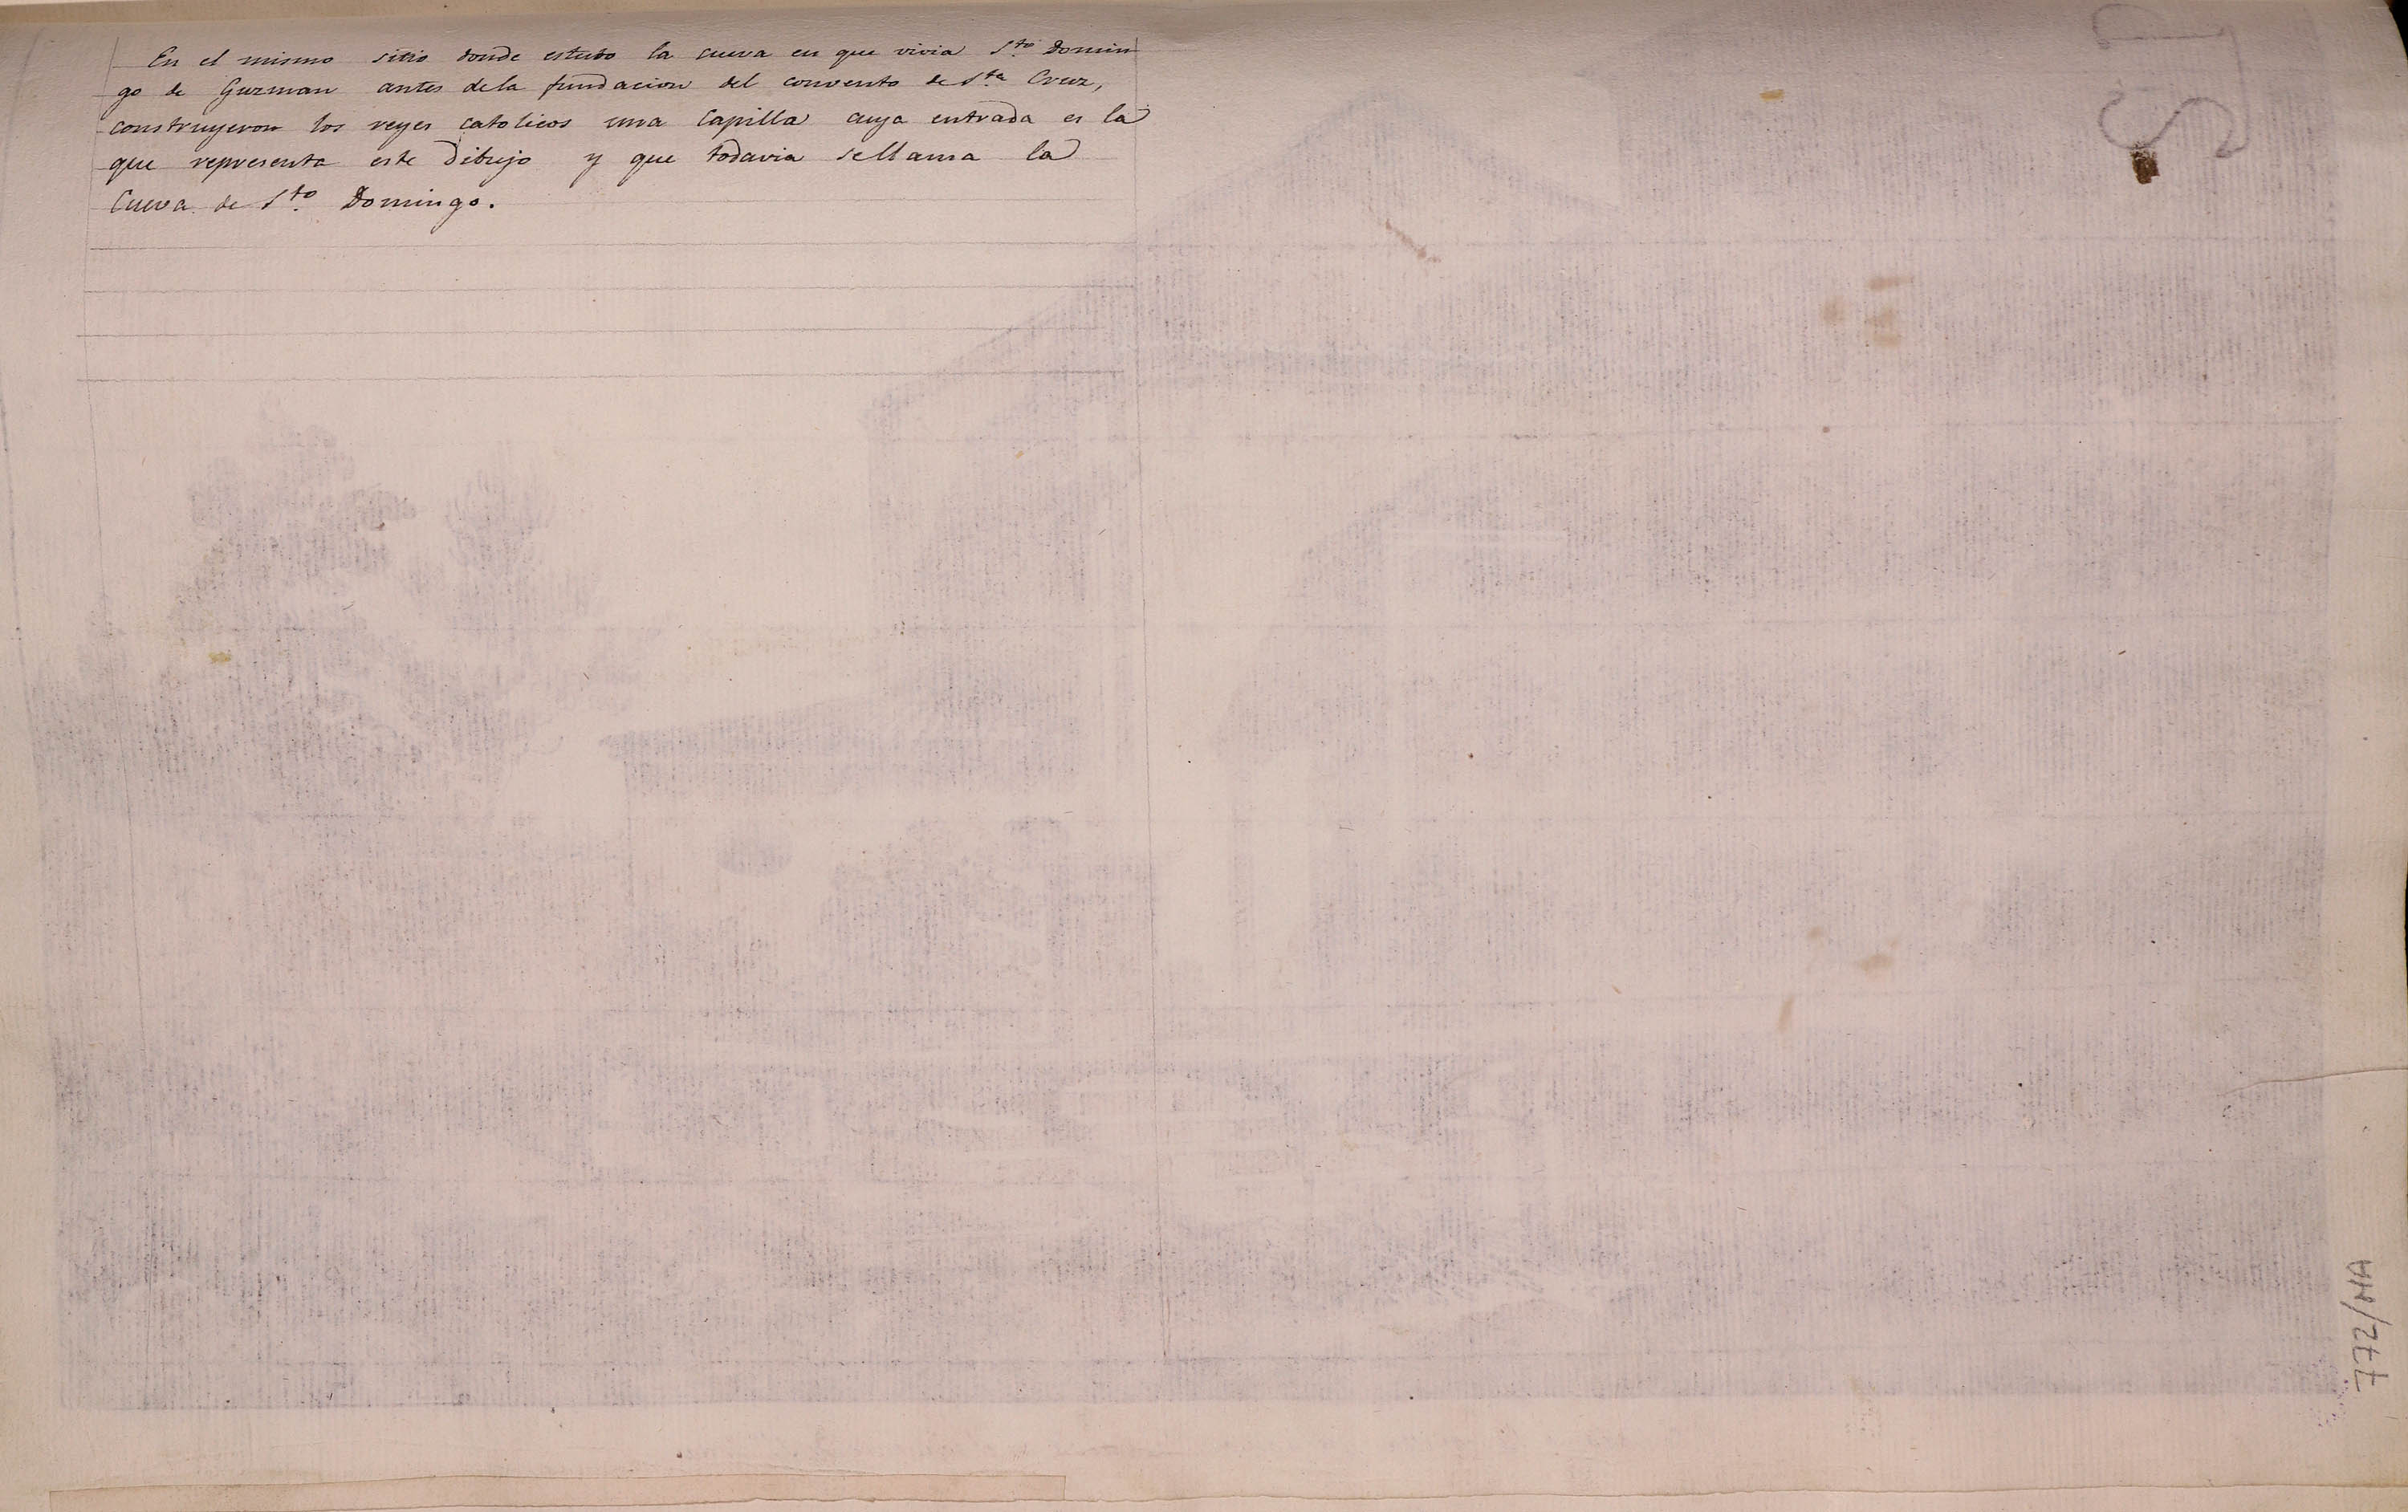 En el mismo sitio donde estubo la cueva en que vivia Sto Domin
go de Guzman antes dela fundacion del convento de Sta Cruz,
construyeron los reyes catolicos una Capilla cuya entrada es la
que representa este dibujo y que todavia sellama la
Cueva de Sto Domingo.